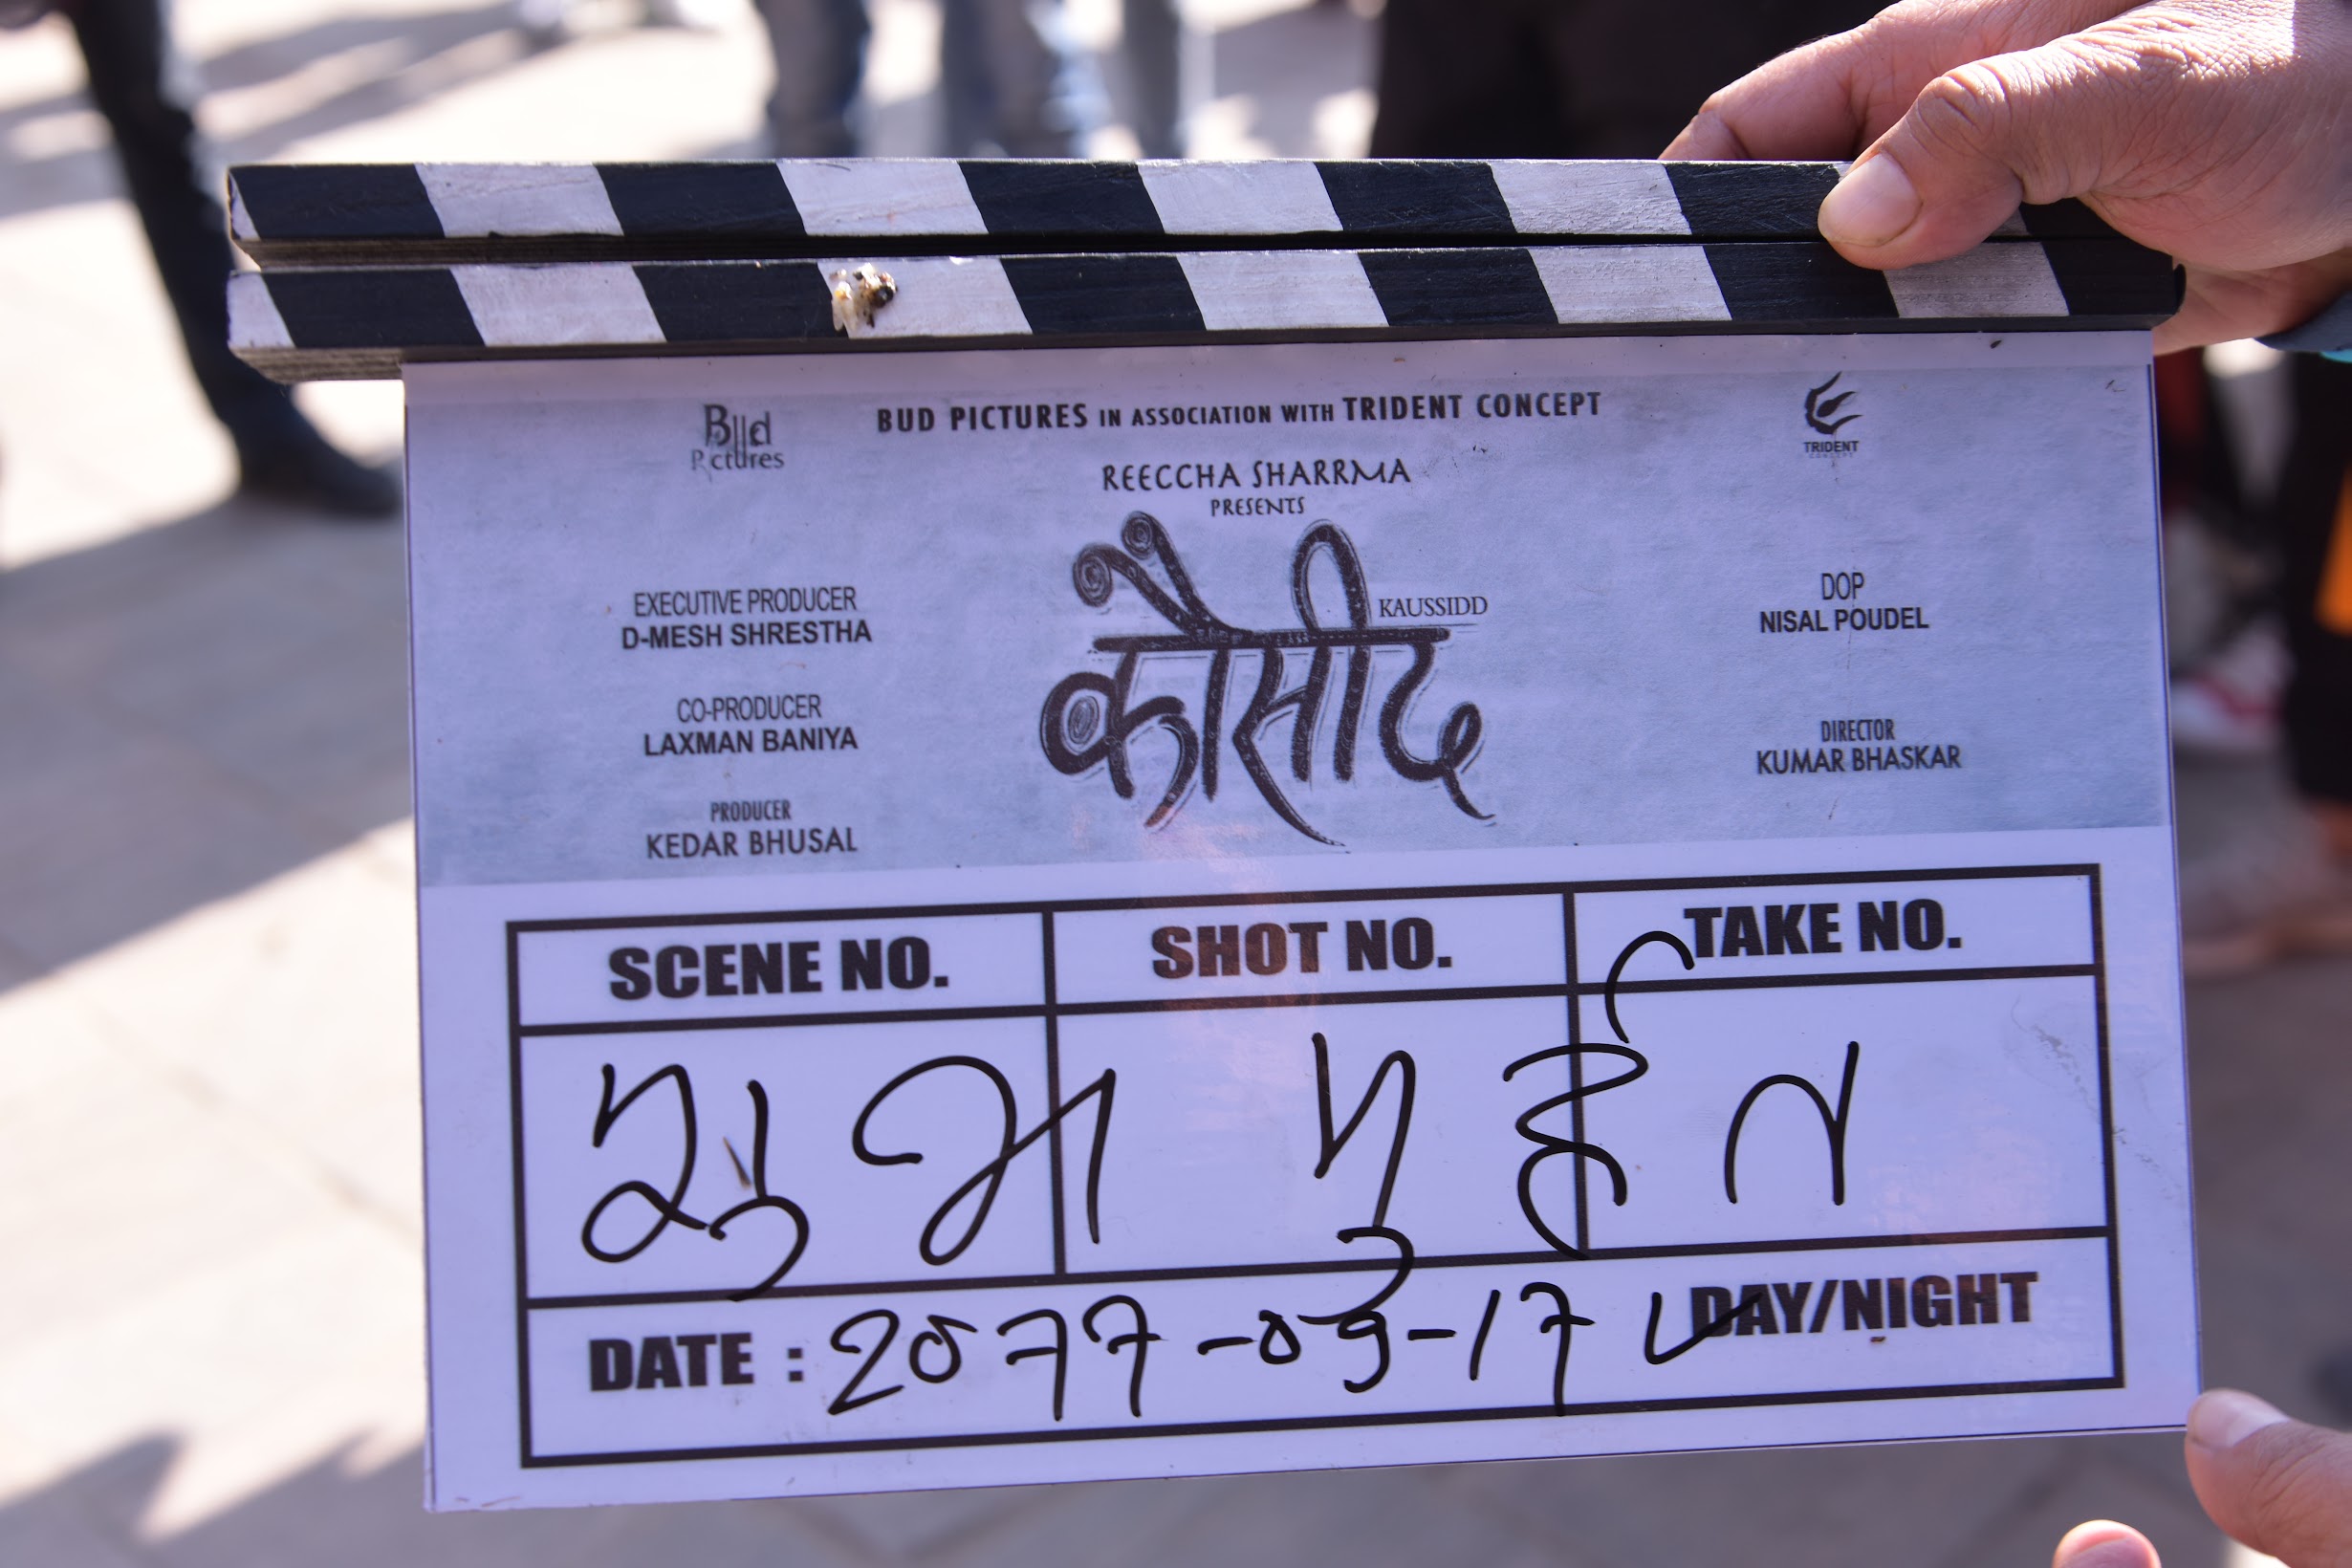 Bud
Pictures
BUD PICTURES IN ASSOCIATION WITH TRIDENT CONCEPT
TRIDENT
CONCEPT
REECCHA SHARRMA
PRESENTS
कौसीद
KAUSSIDD
EXECUTIVE PRODUCER
D-MESH SHRESTHA
CO-PRODUCER
LAXMAN BANIYA
PRODUCER
KEDAR BHUSAL
DOP
NISAL POUDEL
DIRECTOR
KUMAR BHASKAR
SCENE NO. SHOT NO. TAKE NO.
शुभ मुर्हुत
DATE : 2077-09-17 DAY/NIGHT